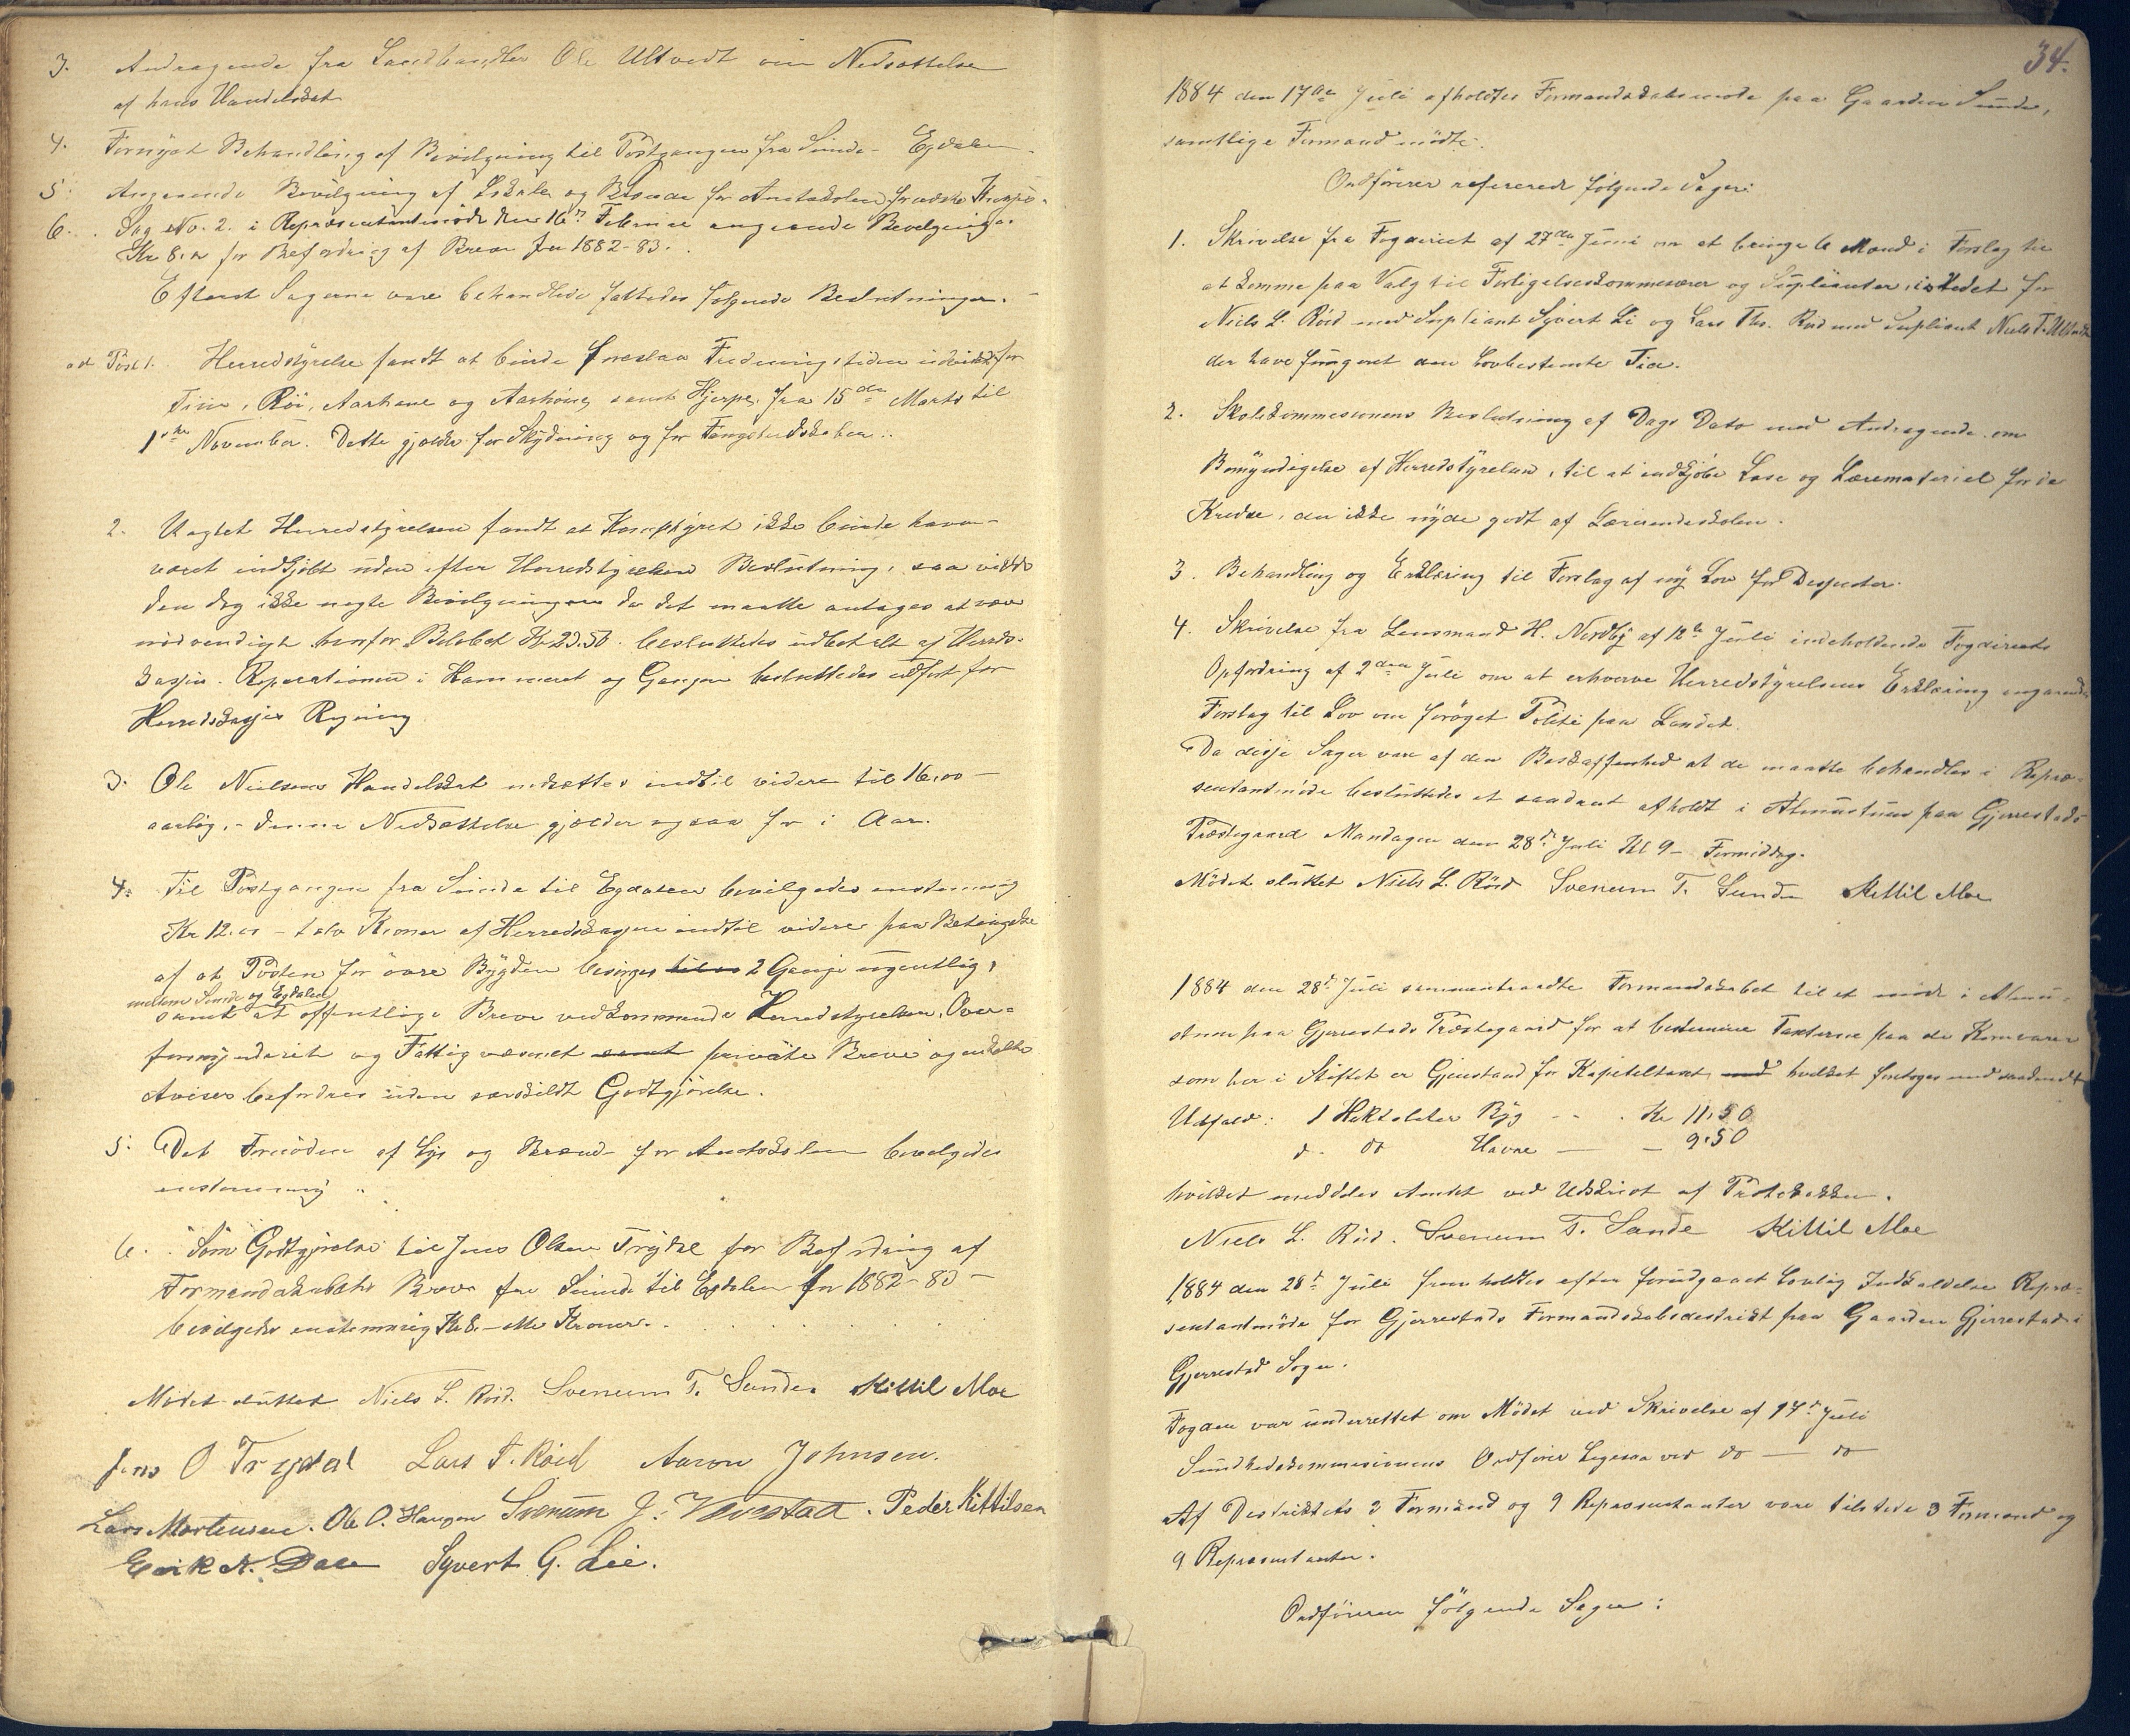 3. Andragende fra Landhandler Ole Ultvedt om Nedsættelse
af hans Handelsskat
4. Fornyet Behandling af Bevilgning til Postgangen fra Sunde - Egdalen
5. Angaaende Bevilgning af Lokale og Brænde for Amtsskolen
6. Sag No. 2. i Repræsentantmöde den 16de Februar angaaende Bevilgning
Kr 8,00 for Befordring af Breve for 1882-83.
Efterat Sagerne vare behandlede fattedes fölgende Beslutninger.
ad Post 1. Herredstyrelse fandt at burde foreslaa Fredningstiden indskrænket for
Tiur, Röi, Aarhane og Aarhöne, samt Hjerpe, fra 15de Marts til
1ste November. Dette gjælder for Skydning og for Fangstredskaber.
2. Uagtet Herredstyrelsen fandt at ikke burde have
været indkjöbt uden efter Herredstyrelsens Beslutning, saa vilde
den dog ikke negte Bevilgningen da det maatte antages at være
nödvendigt hvorfor Belöbet Kr 23.50. besluttedes udbetalt af Herreds-
kassen. Reparationen i Kammeret og Gangen besluttedes udfört for
Herredskasses Regning
3. Ole Nielsens Handelskat nedsættes indtil videre til 16,00 -
aarlig, - denne Nedsættelse gjælder ogsaa for i Aar.
4. Til Postgangen fra Sunde til Egdalen bevilgedes enstemmig
Kr 12.00 - tolv Kroner af Herredskassen indtil videre paa Betingelse
af at Posten for övre Bygden besörges 2 Gange ugentlig,
mellem Sunde og Egdalen
samt at offentlige Breve vedkommende Herredstyrelsen, Over-
formynderiet og Fattigvæsenet samt private Breve og enkelte
Aviser befordres uden særskildt Godtgjörelse.
5. Det Fornödne af Lys og Brænde for Amtsskolen bevilgedes
enstemmig
6. Som Godtgjörelse til Jens Olsen Trydal for Befordring af
Formandskabets Breve fra Sunde til Egdalen for 1882-83 -
bevilgedes enstemmig Kr 8. - otte Kroner.
Mödet sluttet Niels L. Röid. Svenum T. Sunde. Kittil Moe
Jens O Trydal Lars T. Röid Aaron Johnsen.
Lars Mortensen. Ole O. Haugen Svenum J. Vevstad. Peder Kittilsen
Erik N. Dale Syvert G. Lie.
34.
1884 den 17de Juli afholdtes Formandskabsmöde paa Gaarden Sunde,
samtlige Formænd mödte.
Ordförer refererede fölgende Sager:
1. Skrivelse fra Fogderiet af 27de Juni om at bringe 6 Mænd i Forslag til
at komme paa Valg til Forligelseskommisærer og Suplianter, istedet for
Niels L. Röid med Supliant Syvert Li og Lars Ths. Röid med Supliant Niels T. Ultvedt
der have fungeret den lovbestemte Tid.
2. Skolekommisionens Beslutning af Dags Dato med Andragende om
Bemyndigelse af Herredstyrelsen, til at indkjöbe Læse og Læremateriel for de
Kredse, der ikke nyde godt af Lærerindeskolen.
3. Behandling og Erklæring til Forslag af ny Lov for
4. Skrivelse fra Lensmand H. Nordby af 12te Juli indeholdende Fogderiets
Opfordring af 2den Juli om at erhverve Herredstyrelsens Erklæring angaaende
Forslag til Lov om foröget Politi paa Landet.
Da disse Sager vare af den Beskaffenhed at de maatte behandles i Repræ-
sentantmöde besluttedes et saadant afholdt i Almustuen paa Gjerrestads
Præstegaard Mandagen den 28de Juli Kl 9 - Formiddag.
Mödet sluttet Niels L. Röid Svenum T. Sunde Kittil Moe
1884 den 28de Juli sammentraadte Formandskabet til et möde i Almu-
stuen paa Gjerrestads Præstegaard for at bestemme Taxterne paa de Kornvarer
som her i Stiftet er Gjenstand for Kapiteltaxt, hvilket foretoges med saadant
Udfald: 1 Hektoliter Byg - - . Kr 11,50
d. do Havre — — 9,50
hvilket meddeles Amtet ved Udskrivt af Protokollen.
Niels L. Röid. Svenum T. Sunde Kittil Moe
1884 den 28de Juli fremholdtes efter forudgaaet Lovlig Indkaldelse Repræ-
sentantmöde for Gjerrestads Formandskabsdestrikt paa Gaarden Gjerrestad i
Gjerrestad Sogn.
Fogden var underrettet om Mödet ved Skrivelse af 17de Juli
Sundhedskommisionens Ordförer Ligesaa ved do — do
Af Destriktets 3 Formænd og 9 Repræsentanter vare tilstede 3 Formænd og
9 Repræsentanter.
Ordföreren fölgende Sager: